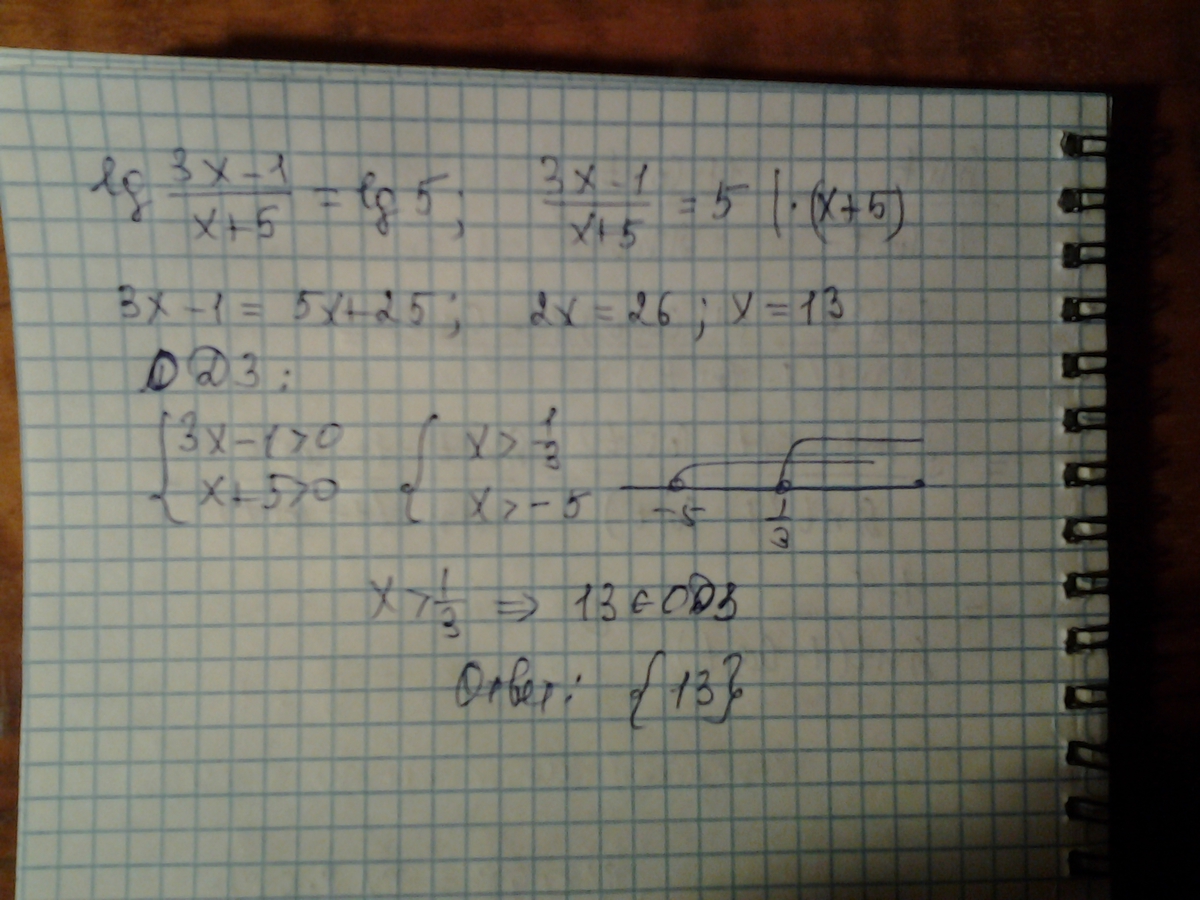 lg (3x-1)/(x+5) = lg 5; (3x-1)/(x+5) = 5 | ·(x+5)
3x-1 = 5x+25; 2x = 26; x = 13
ОДЗ:
{ 3x-1>0 { x > 1/3
x+5>0 x > -5 -5 1/3
x > 1/3 ⇒ 13 ∈ ОДЗ
Ответ: {13}